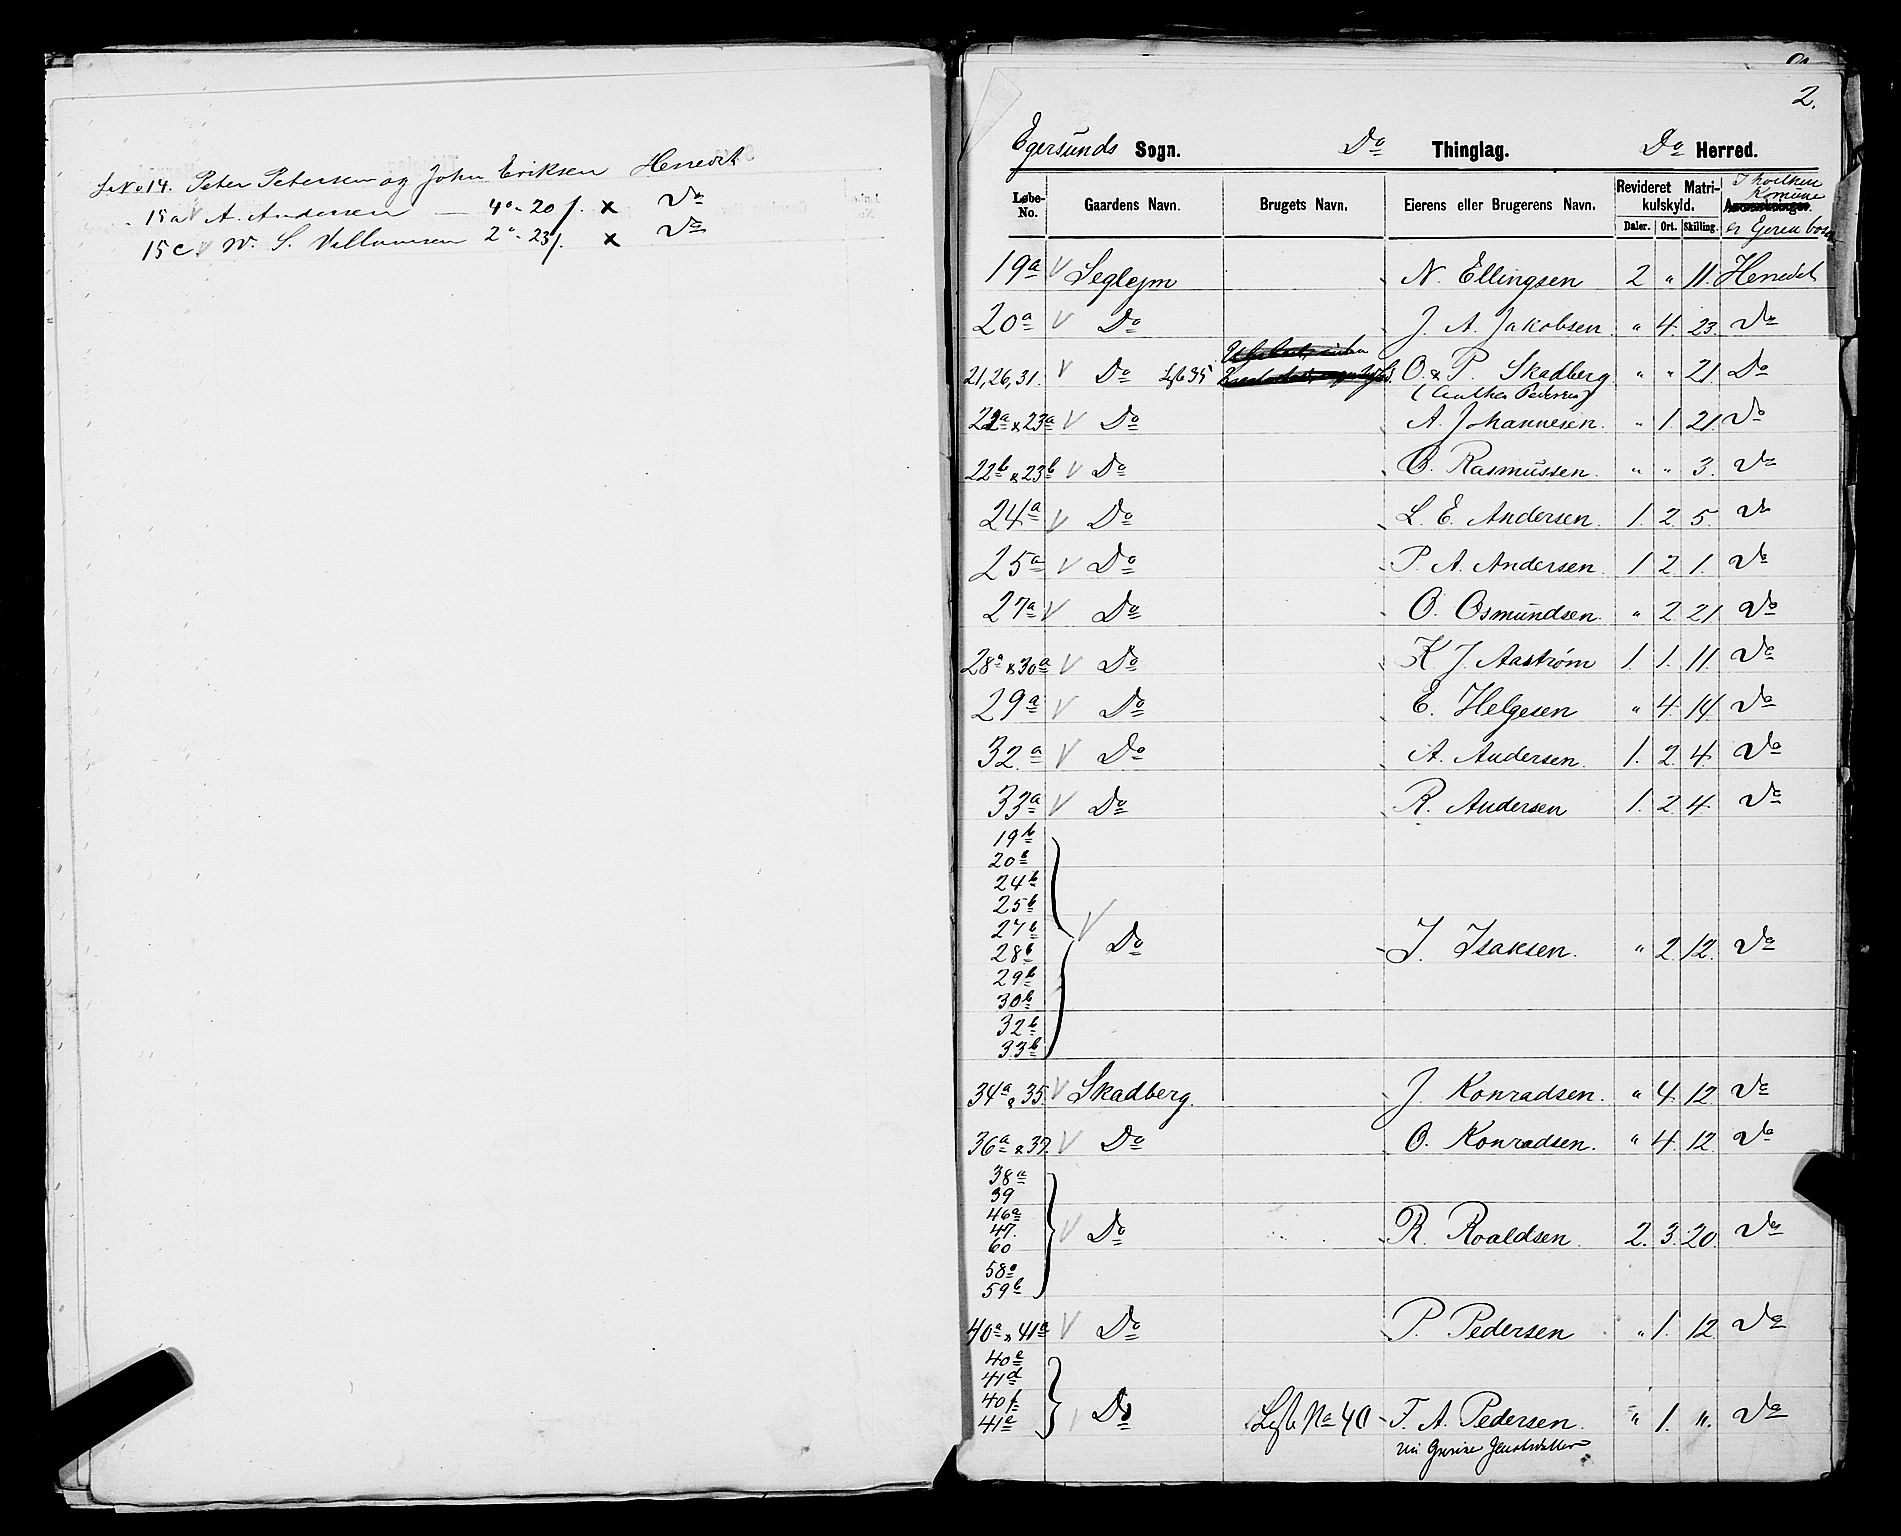 LNo 14. Peter Petersen og John Eriksen Herredet
15a V A. Andersen — 4o - 20 f. x Do
15c V W. S. Vellumsen 2o - 23 f. x Do
2.
Egersunds Sogn. Do Thinglag. Do Herred.
Løbe-No. Gaardens Navn. Brugets Navn. Eierens eller Brugerens Navn. Revideret Matrikulskyld. I hvilken Komune er Geren bosat
Daler. Ort. Skilling.
19a V Seglejm N. Ellingsen 2 " 11. Herredet
20a V Do J. A. Jakobsen. " 4. 23. Do
21, 26, 31. V Do Lfb 35 O. & P. Skadberg " " 21. Do
(Anthon Pedersen)
22a & 23a V Do A. Johannesen. " 1. 21. Do
22b & 23b V Do O. Rasmussen. " " 3. Do
24a V Do L. E. Andersen. 1. 2. 5. Do
25a V Do P. A. Andersen. 1 2. 1. Do
27a V Do O. Osmundsen. " 2. 21. Do
28a & 30a V Do K. J. Aastrøm 1. 1. 11. Do
29a V Do E. Helgesen " 4. 14 Do
32a V Do A. Andersen. 1. 2. 4. Do
33a V Do R. Andersen 1. 2. 4. Do
19b
20b
24b
25b
27b
28b V Do J. Isaksen. " 2. 12. Do
29b
30b
32b
33b
34a & 35. V Skadberg. J. Konradsen. " 4. 12. Do
36a & 37. V Do O. Konradsen. " 4. 12. Do
38a
39
46a
47.
60 V Do R. Roaldsen. 2. 3. 20. Do
58a
59b
40a & 41a V Do P. Pedersen " 1. 12 Do
40e
41d
40f
41e Do Lfb No 40 T. A. Pedersen. " 1. ". Do